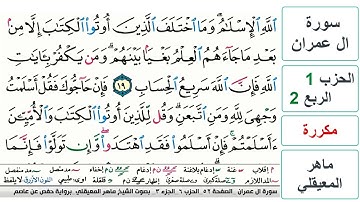 اللَّهِ الْإِسْلَٰمُ وَمَا اخْتَلَفَ الَّذِينَ أُوتُوا الْكِتَٰبَ إِلَّا مِنْ
بَعْدِ مَا جَاءَهُمُ الْعِلْمُ بَغْيًا بَيْنَهُمْ وَمَن يَكْفُرْ بِـَٔايَٰتِ
اللَّهِ فَإِنَّ اللَّهَ سَرِيعُ الْحِسَابِ ١٩ فَإِنْ حَاجُّوكَ فَقُلْ أَسْلَمْتُ
وَجْهِيَ لِلَّهِ وَمَنِ اتَّبَعَنِ وَقُل لِّلَّذِينَ أُوتُوا الْكِتَٰبَ وَالْأُمِّيِّـۧنَ
ءَأَسْلَمْتُمْ فَإِنْ أَسْلَمُوا فَقَدِ اهْتَدَوا وَّإِن تَوَلَّوْا فَإِنَّمَا
سورة
ال عمران
الحزب 1
الربع 2
مكررة
ماهر
المعيقلي
سورة ال عمران . الصفحة ٥٢ . الحزب ٦ . الجزء ٣ . بصوت الشيخ ماهر المعيقلي . برواية حفص عن عاصم